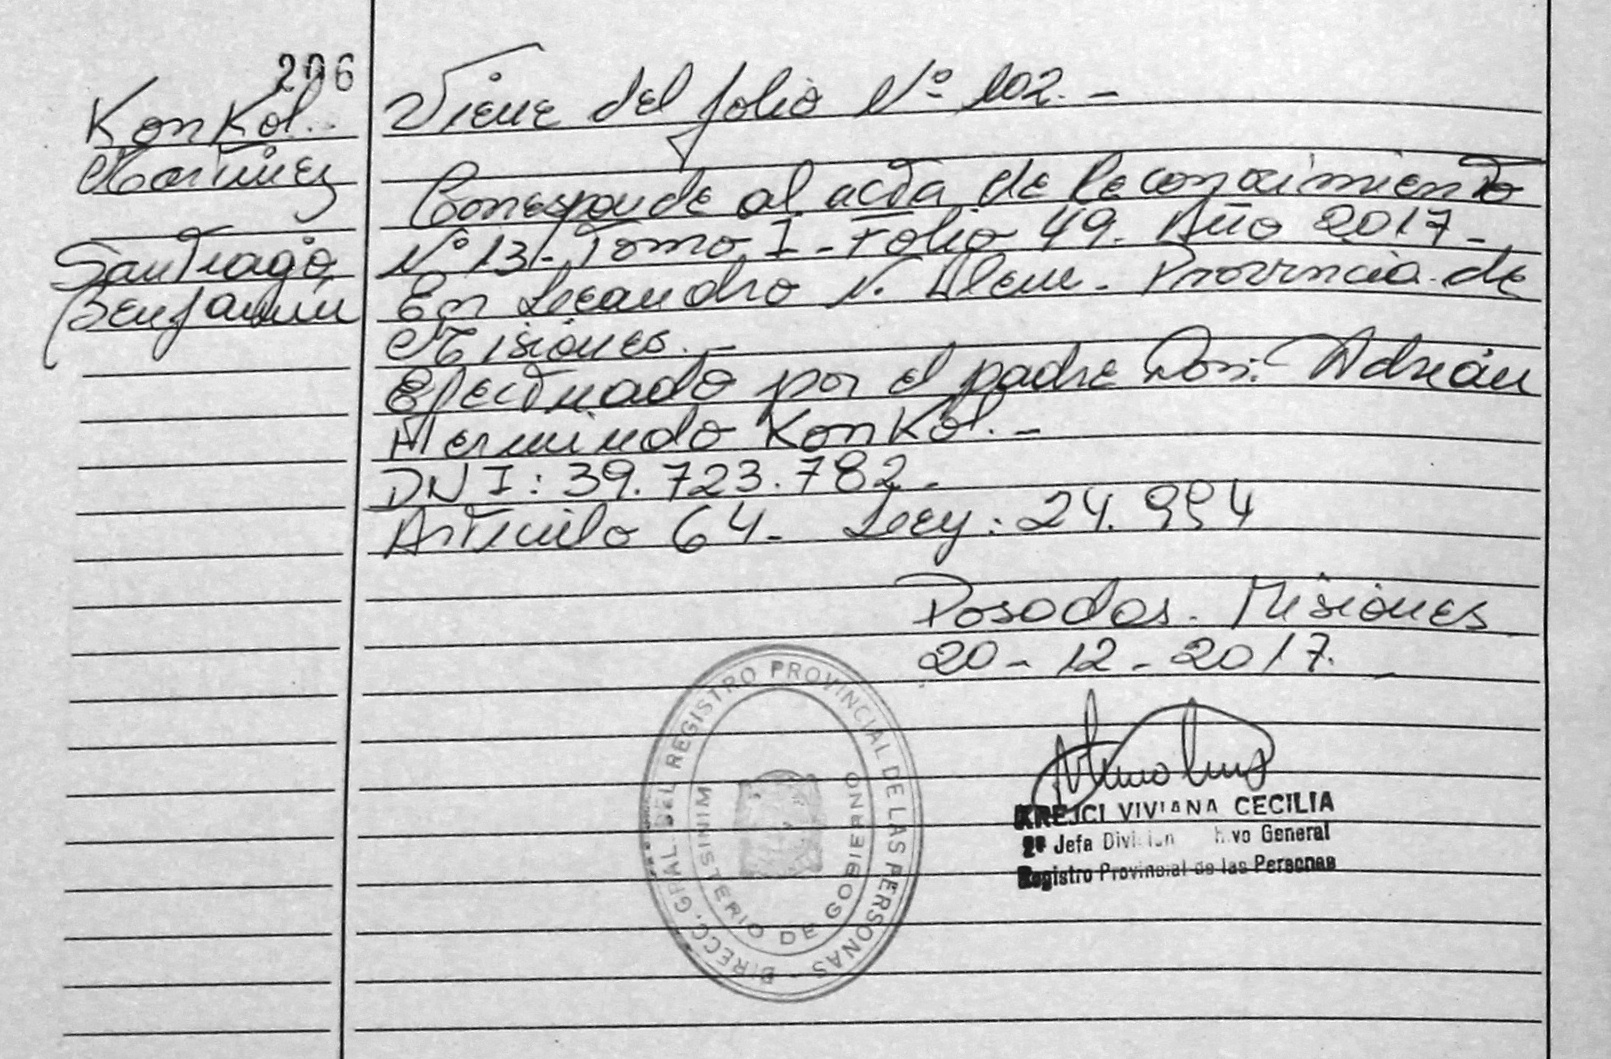 206
Konkol.
Martinez
Santiago
Benjamin
Viene del folio N° 102.-
Corresponde al acta de Reconocimiento
N° 13 - Tomo I - Folio 49. Año 2017-
En Leandro N. Alem. Provincia de
Misiones.-
Efectuado por el padre Don: Adrián
Hermindo Konkol.-
DNI: 39.723.782.
Artículo 64. Ley: 24.994
Posadas. Misiones
20-12-2017.
DIRECC. GRAL. DEL REGISTRO PROVINCIAL DE LAS PERSONAS -
MINISTERIO DE GOBIERNO
KREJCI VIVIANA CECILIA
2ª Jefa Division General
Registro Provincial de las Personas